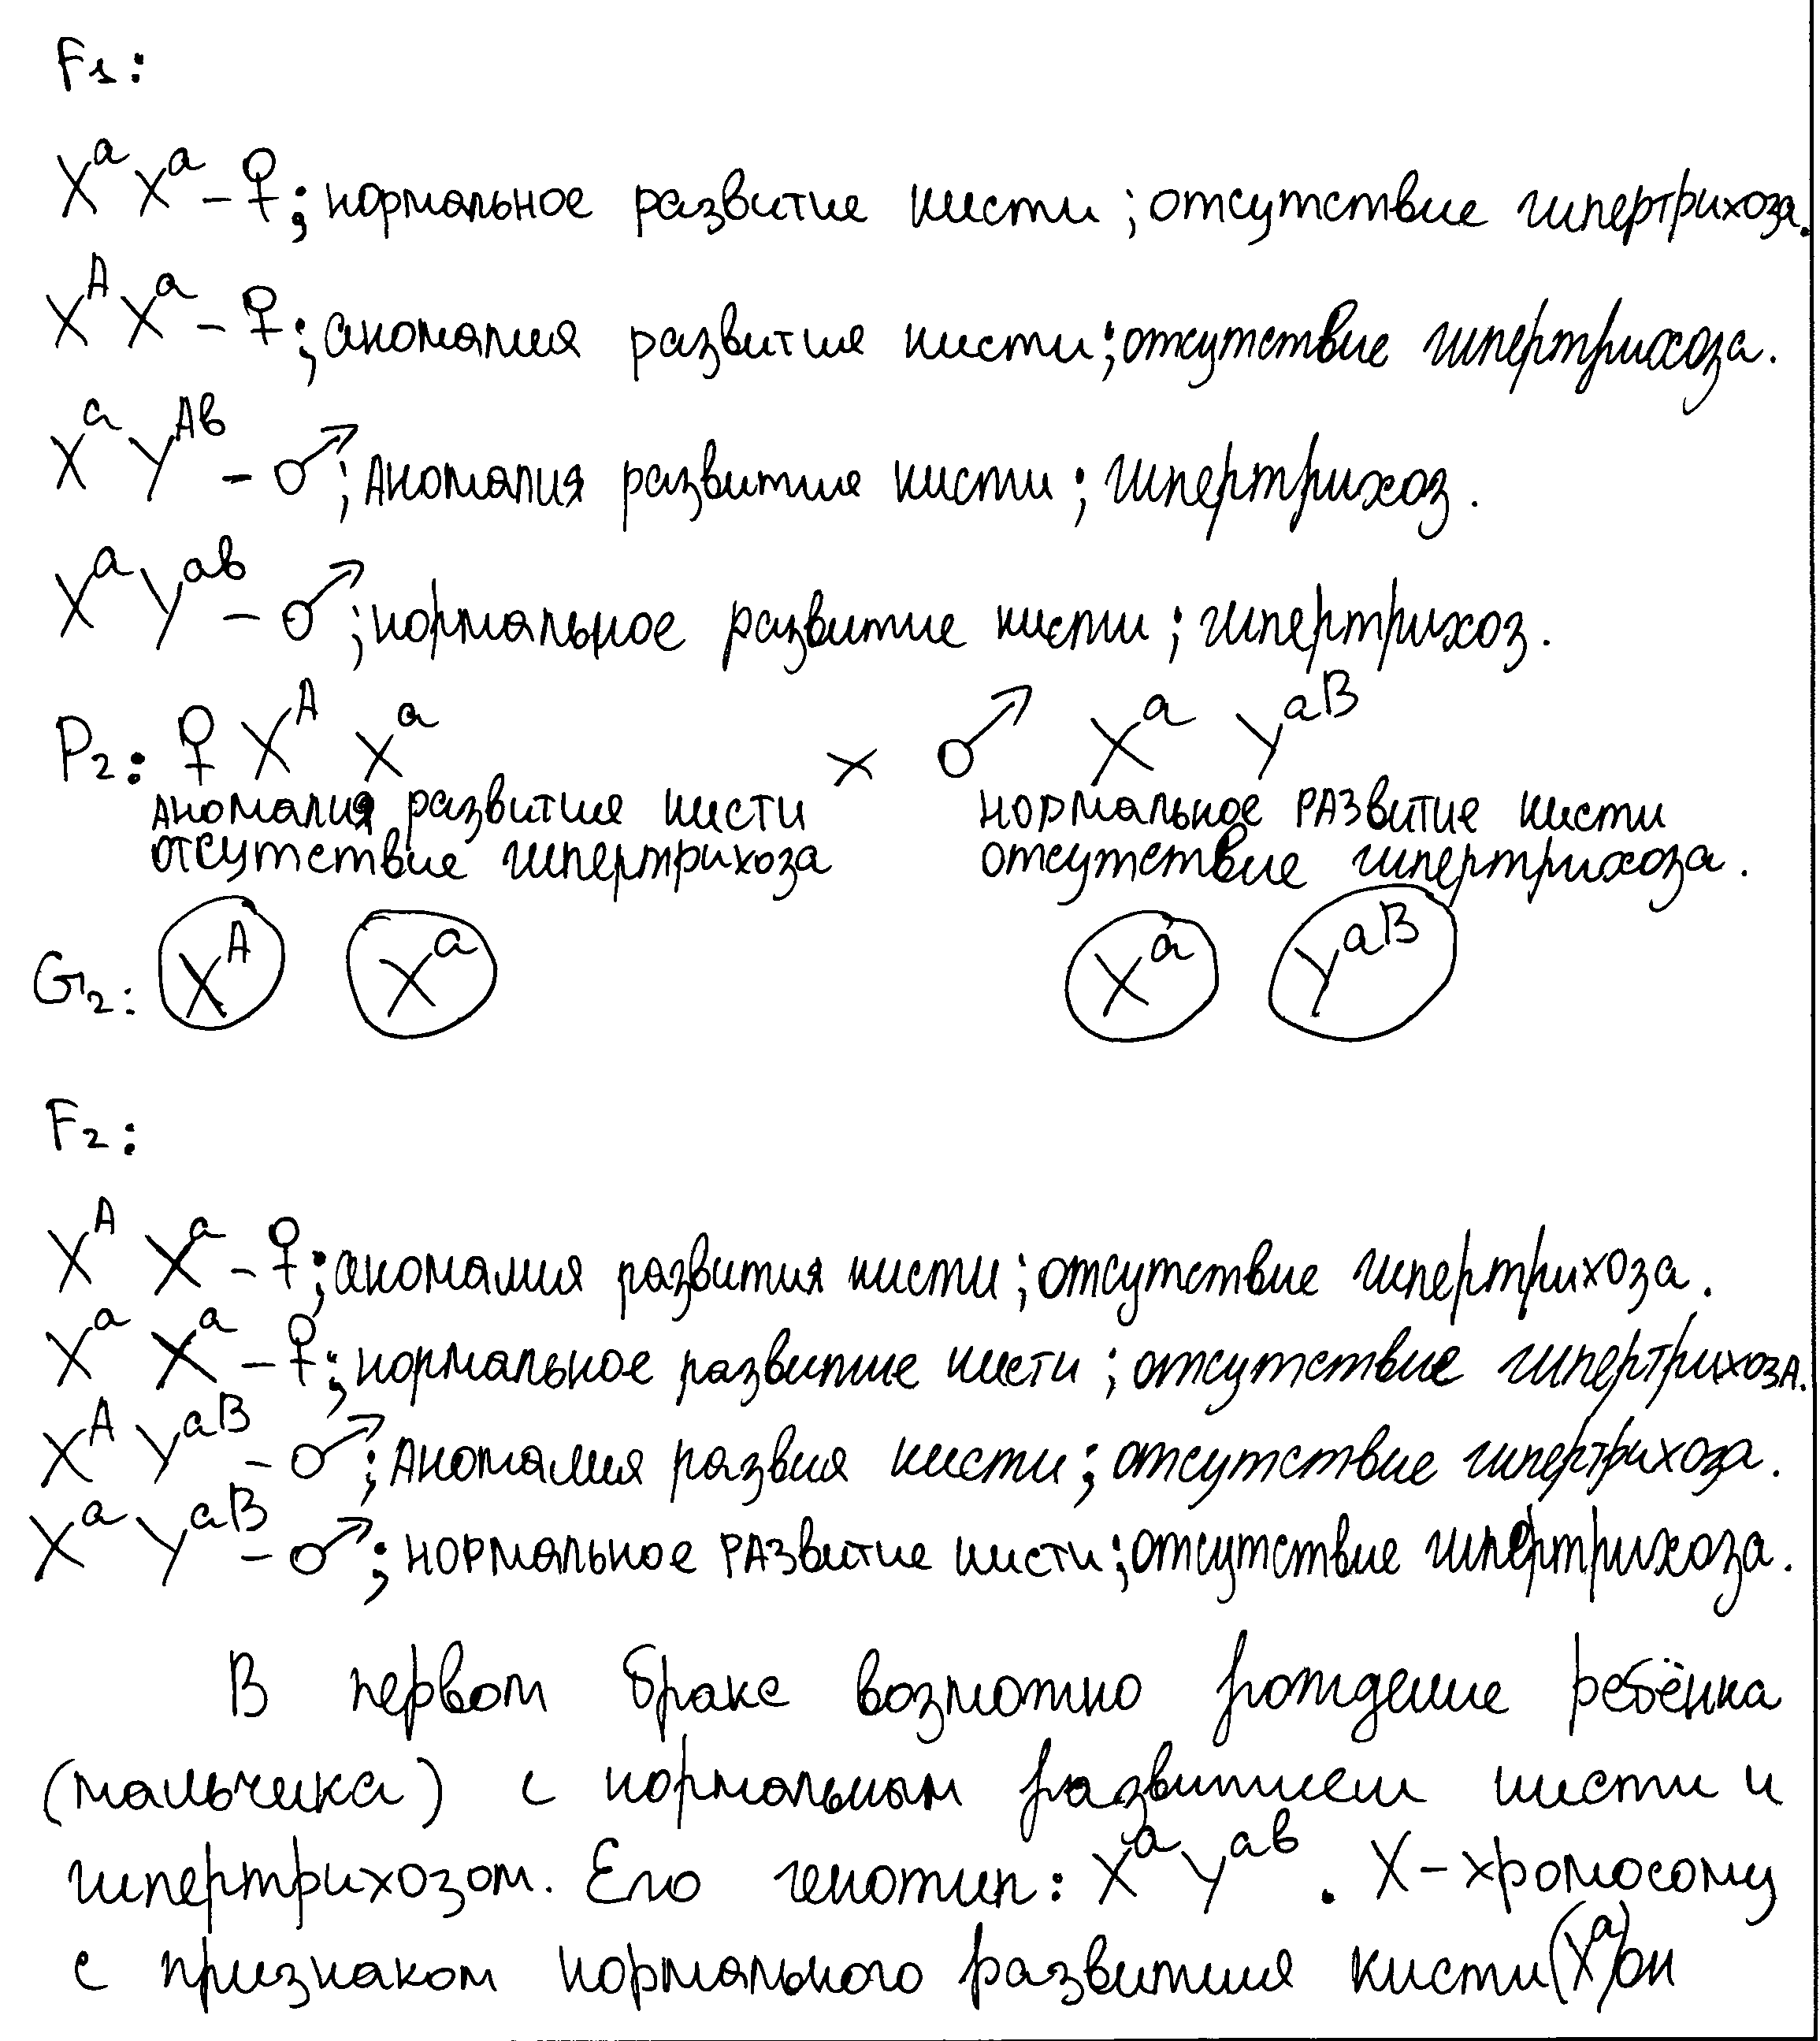 F1:
XᵃXᵃ - ♀; нормальное развитие кисти; отсутствие гипертрихоза.
XᴬXᵃ - ♀; аномалия развития кисти; отсутствие гипертрихоза.
XᵃYᴬᵇ - ♂; Аномалия развития кисти; гипертрихоз.
XᵃYᵃᵇ - ♂; нормальное развитие кисти; гипертрихоз.
P2: ♀ Xᴬ Xᵃ × ♂ Xᵃ Yᵃᴮ
аномалия развития кисти нормальное развитие кисти
отсутствие гипертрихоза отсутствие гипертрихоза.
G2: Xᴬ Xᵃ Xᵃ Yᵃᴮ
F2:
Xᴬ Xᵃ - ♀; аномалия развития кисти; отсутствие гипертрихоза.
Xᵃ Xᵃ - ♀; нормальное развитие кисти; отсутствие гипертрихоза.
Xᴬ Yᵃᴮ - ♂; Аномалия развия кисти; отсутствие гипертрихоза.
Xᵃ Yᵃᴮ - ♂; нормальное развитие кисти; отсутствие гипертрихоза.
В первом браке возможно рождение ребёнка
(мальчика) с нормальным развитием кисти и
гипертрихозом. Его генотип: XᵃYᵃᵇ. X-хромосому
с признаком нормального развития кисти (Xᵃ) он